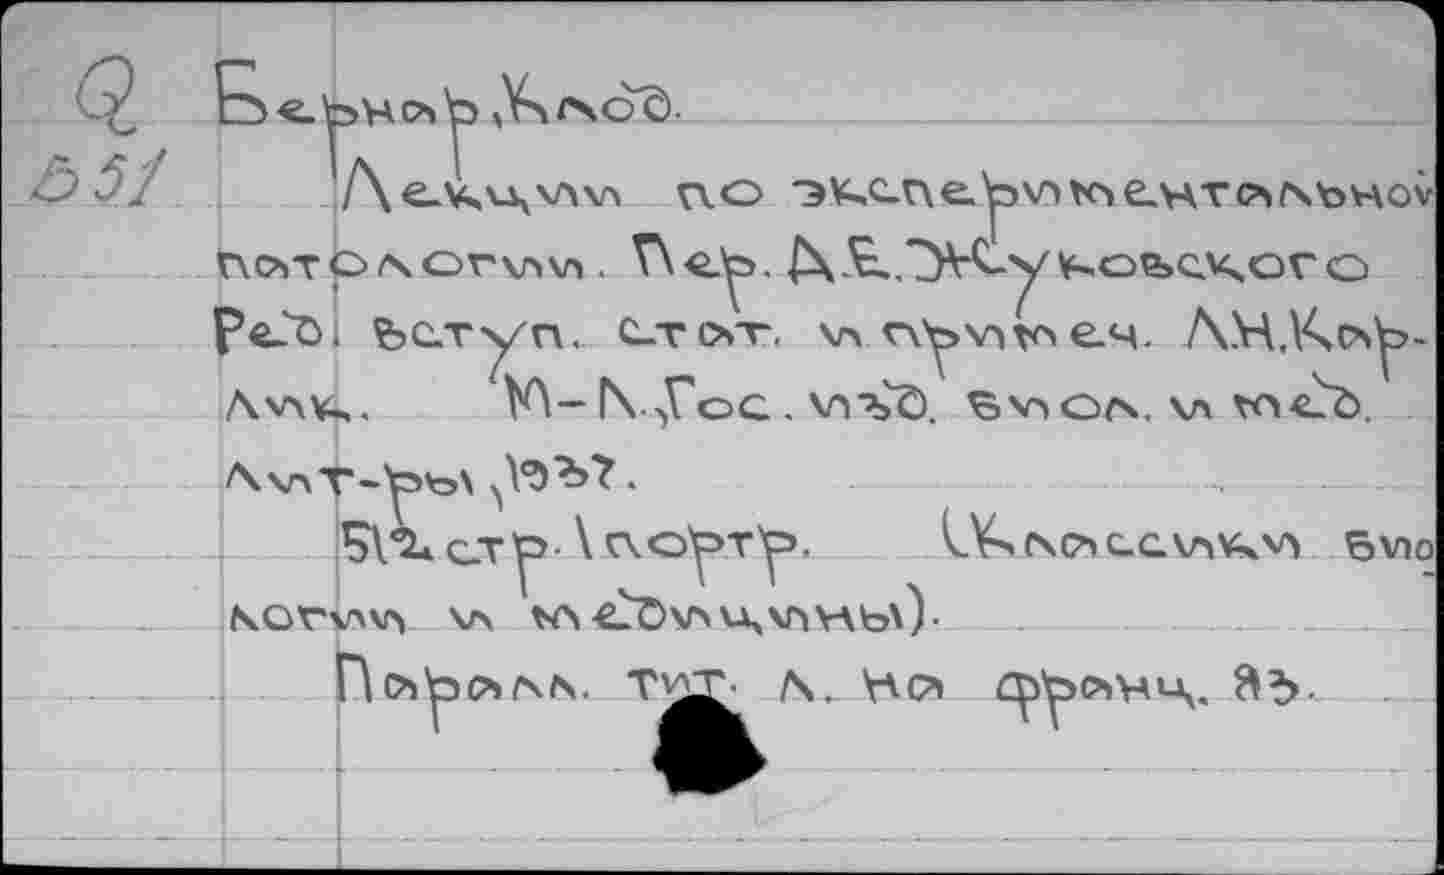 Q Бернар,Клод.
Б51 Лекции по экспериментальной
патологии. Пер. Д.Е.Жуковского
Ред. вступ. стат. и примеч. Л.Н.Кар-
лик. М-Л.,Гос. изд. биол. и мед.
лит-ры,1937.
512 стр. 1 портр. (Классики био
логии и медицины).
Паралл. тит. л. на франц. яз.